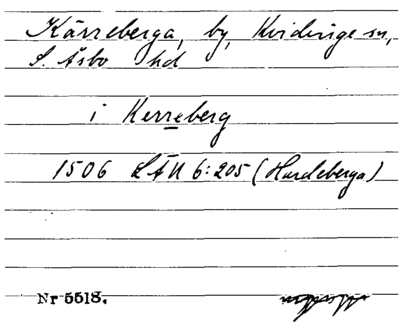 Kärreberga, by, Kvidinge sn,
S. Åsbo hd
i Kerreberg
1506 LÄU 6:205 (Hardeberga)
Nr 5518.